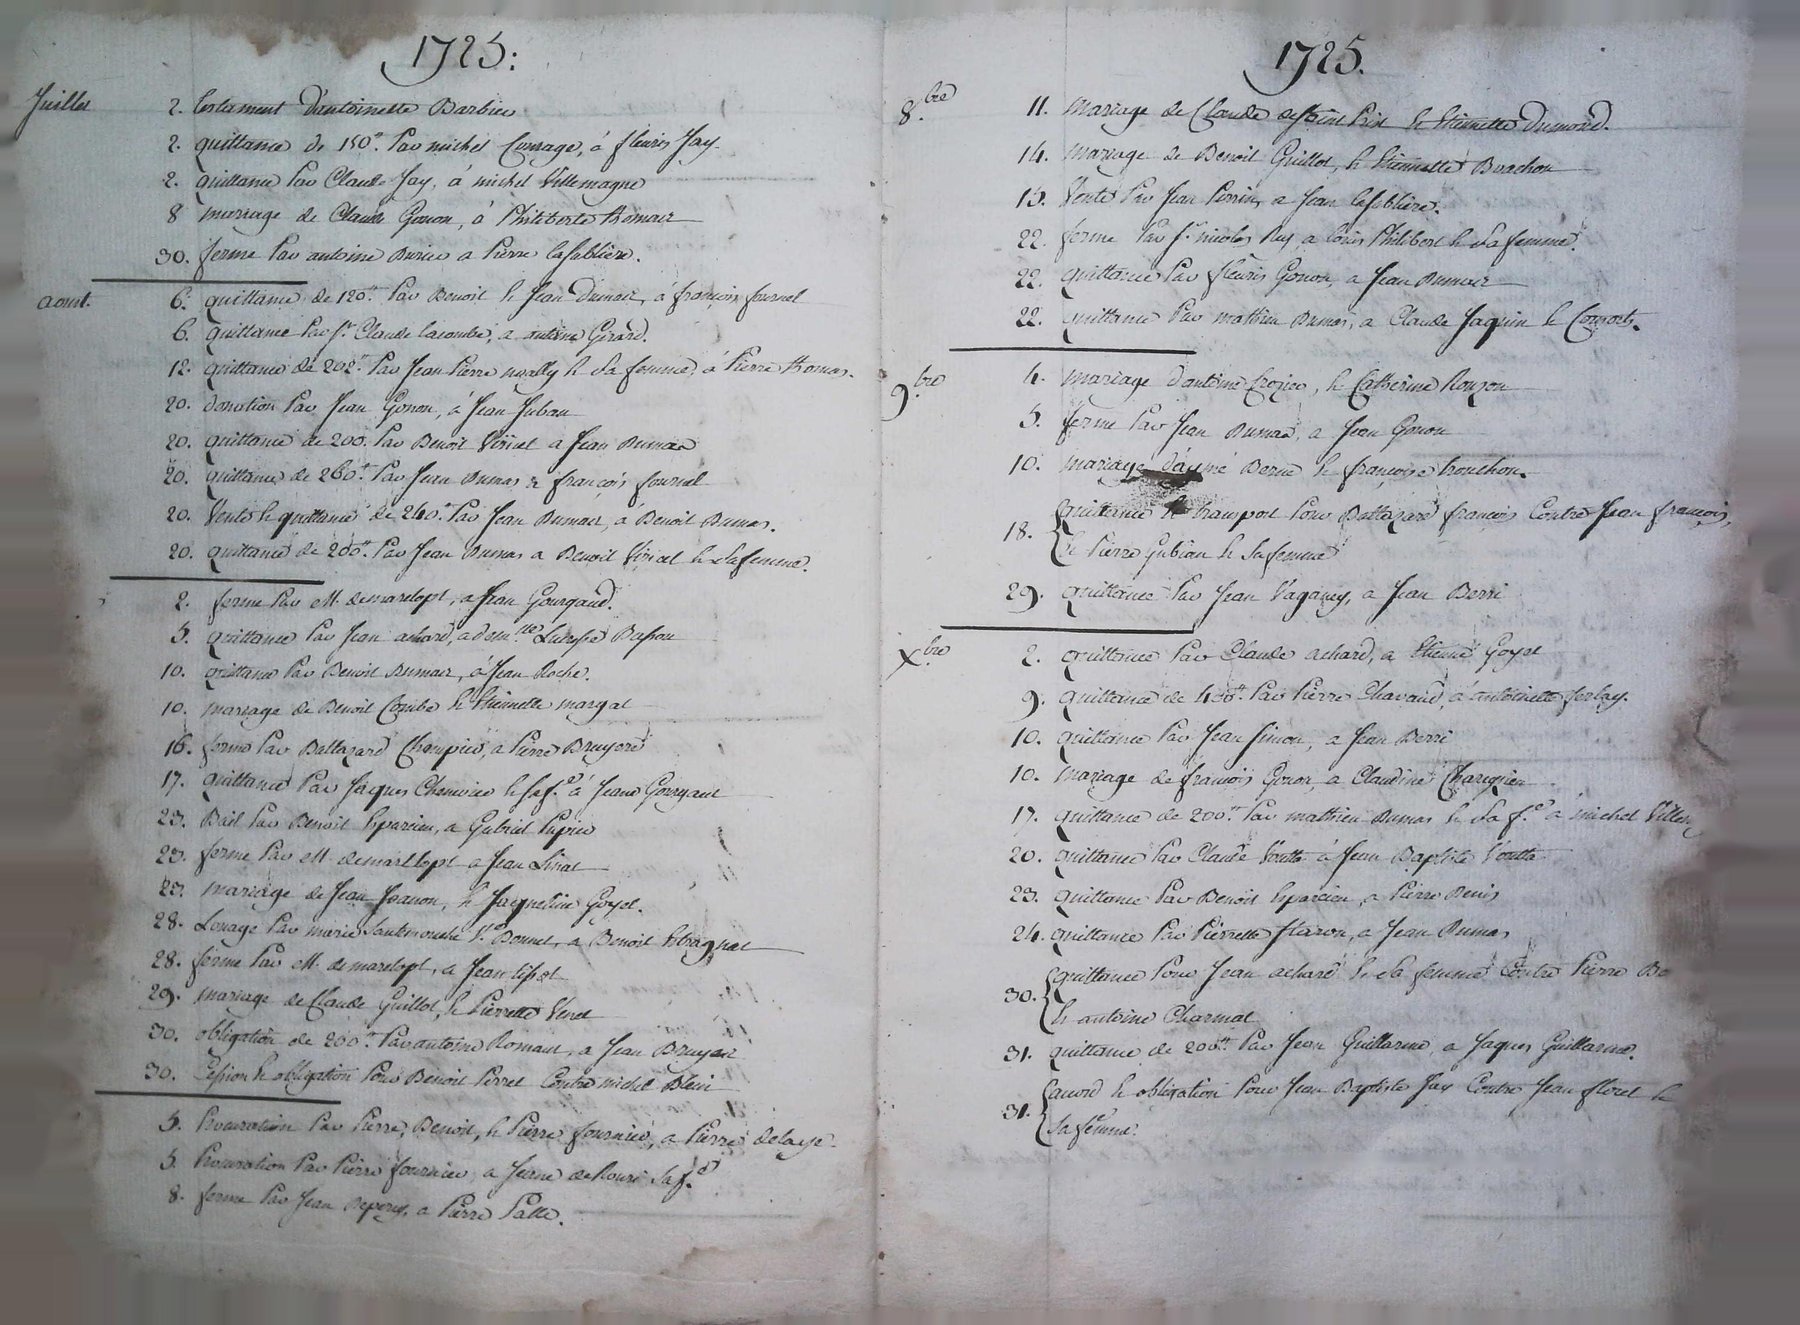 1725:
Juillet 2. testament d'antoinette Barbier
2. quittance de 150tt Par michel Courage, à fleuris Jay
2. quittance Par Claude Jay, à michel Villemagne
8 mariage de Claude Gonon, à Philiberte thomas
30. ferme Par antoine Durieu a Pierre lasablière.
aoust. 6. quittance de 120tt Par Benoit & Jean Dumas, à françois fournel
6. quittance Par Sr Claude lacombe, a antoine Girard.
12. quittance de 202tt Par Jean Pierre & sa femme, à Pierre thomas.
20. donation Par Jean Gonon, à Jean
20. quittance de 200. Par Benoit Virial a Jean Dumas
20. quittance de 260tt Par Jean Dumas a françois fournel
20. Vente & quittance de 240tt Par Jean Dumas, à Benoit Dumas.
20. quittance de 200tt Par Jean Dumas a Benoit Virial & sa femme.
2. ferme Par M. demarelopt, a Jean Gourgaud.
5. quittance Par Jean achard, a demlle Basson
10. quittance Par Benoit Dumas, à Jean Roche.
10. mariage de Benoit Combe & Etiennette margat
16. ferme Par Baltazard Choupier, a Pierre Bruyere
17. quittance Par Jaques & sa fe à Jean Gourgaud
23. Bail Par Benoit Esparcieu, a Gabriel Papier
23. ferme Par M. demarelopt a Jean
23. mariage de Jean, & Jaqueline Goyet.
28. Louage Par marie Ve Bonnet, a Benoit
28. ferme Par M. demarelopt, a Jean
29. mariage de Claude Guillot, & Pierrette Venet
30. obligation de 200tt Par antoine Romans, a Jean Bruyas
30. Cession & obligation Pour Benoit Perret Contre michel Blein
5. Procuration Par Pierre, Benoit, & Pierre fournier, a Pierre delaye
5. Procuration Par Pierre fournier, a Jeanne sa fe
8. ferme Par Jean, a Pierre Palle.
1725.
8.bre 11. mariage de Claude de saint Prix & Etiennette Dumond.
14. mariage de Benoit Guillot, & Etiennette Brachon
15. Vente Par Jean Perrin, a Jean lasablière.
22. ferme Par Sr nicolas Rey, a louis Philibert & sa femme.
22. quittance Par fleuris Gonon, a Jean Dumas
22. quittance Par mathieu Dumas, a Claude Jaquin & Consorts.
9.bre 4. mariage d'antoine Crozier, & Catherine Ronzon
5. ferme Par Jean Dumas, a Jean Gonon
10. mariage d'aymé Berne & françoise tronchon.
18. quittance & transport Pour Baltazard françois Contre Jean françois,
& Pierre Gubian & sa femme
29. quittance Par Jean Vaganey, a Jean Berri
Xbre 2. quittance Par Claude achard, a Etienne Goyet
9. quittance de 400tt Par Pierre Chavand, a antoinette ferlay.
10. quittance Par Jean Simon, a Jean Berri
10. mariage de françois Gonon, a Claudine
17. quittance de 200tt Par mathieu Dumas & sa fe a michel Villem
20. quittance Par Claude Voutta à Jean Baptiste Voutta
23. quittance Par Benoit Esparcieu, a Pierre Denis
24. quittance Par Pierrette, a Jean Dumas
30. quittance Pour Jean achard & sa femme Contre Pierre Be
& antoine Charmat
31. quittance de 200tt Par Jean Guillarme, a Jaques Guillarme.
31. acord & obligation Pour Jean Baptiste Jay Contre Jean floret &
sa femme.